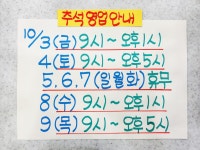 추석영업안내
10/3(금) 9시~오후1시
4(토) 9시~오후5시
5.6.7(일월화) 휴무
8(수) 9시~오후1시
9(목) 9시~오후5시